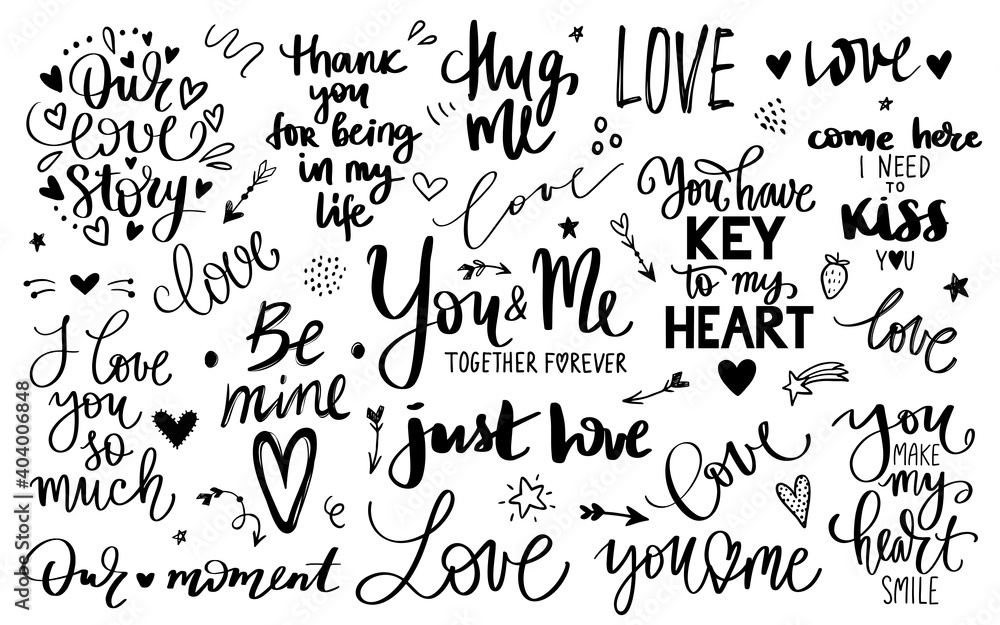 Our
love
Story
thank
you
for being
in my
life
Hug
me
LOVE
love
come here
I NEED
TO
Kiss
YOU
love
You have
KEY
to my
HEART
love
You & Me
TOGETHER FOREVER
Be
mine
love
I love
you
so
much
just love
Love
you
MAKE
my
heart
SMILE
Our moment
Love
you me
Adobe Stock | #404006848
Adobe Stock
Adobe Stock
Adobe Stock